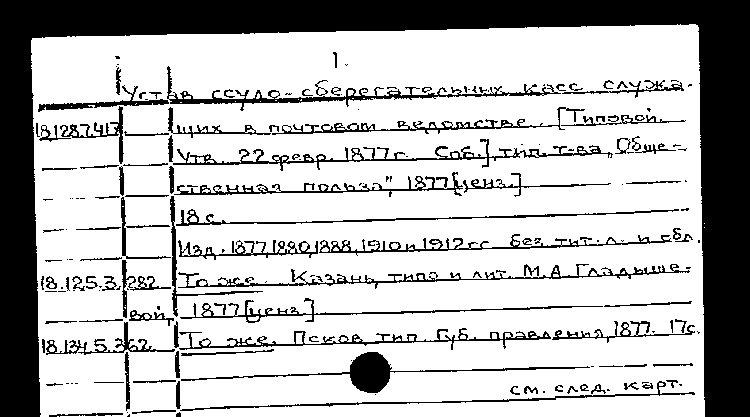 1.
Устав ссудо-сберегательных касс служа-
18.128.7.417 щих в почтовом ведомстве. [Типовой.
Утв. 22 февр. 1877 г. Спб.], тип. т-ва "Обще-
ственная польза", 1877 [ценз.]
18 с.
Изд. 1877, 1880, 1888, 1910 и 1912 гг. без тит. л. и обл.
18.125.3.282 То же. Казань, типо и лит. М.А. Гладыше-
вой, 1877 [ценз.]
18.134.5.362 То же. Псков, тип. Губ. правления, 1877. 17с.
см. след. карт.